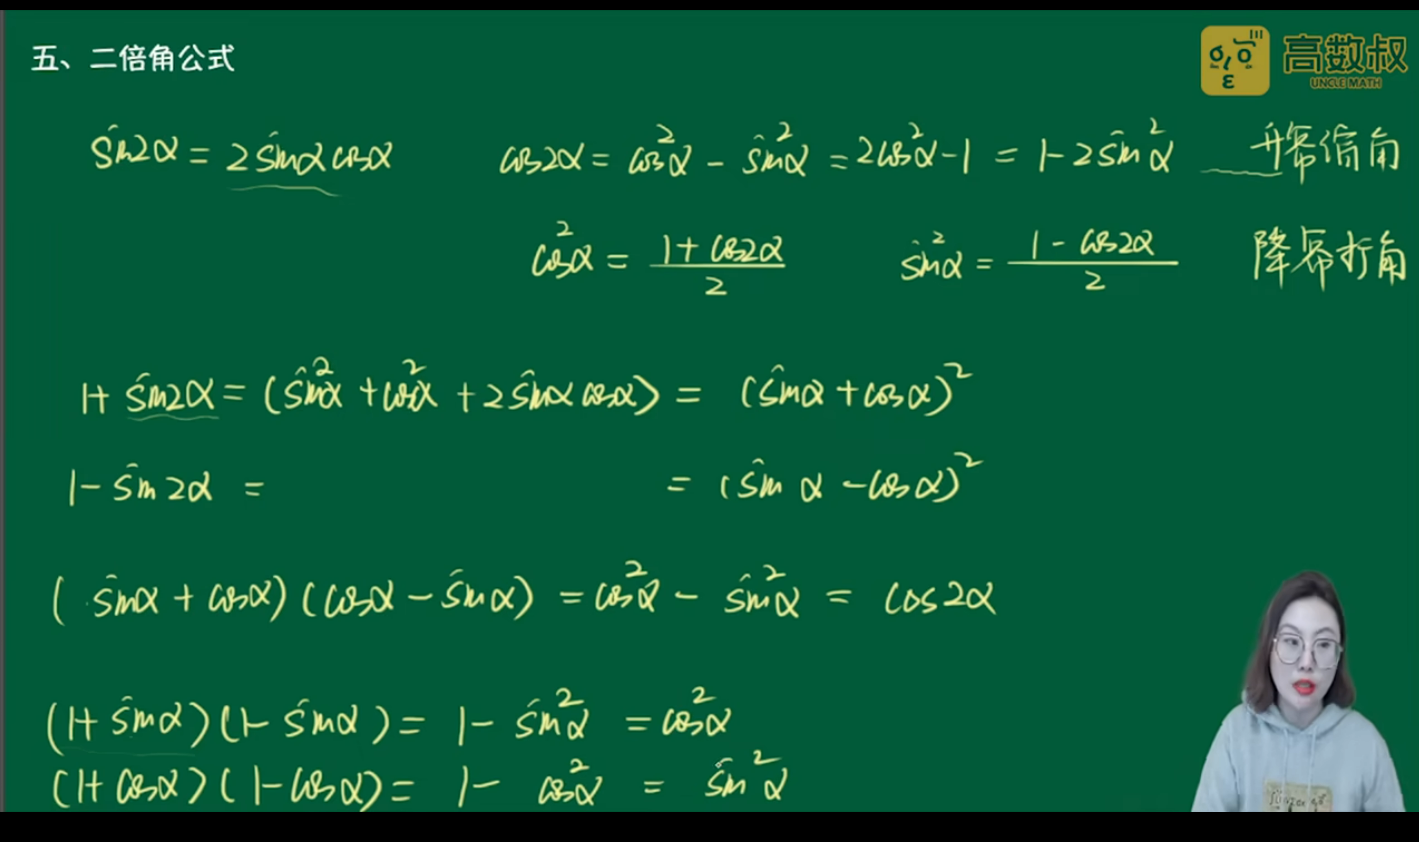 五、二倍角公式
高数叔
UNCLE MATH
sin2α = 2sinαcosα cos2α = cos²α - sin²α = 2cos²α-1 = 1-2sin²α 升幂缩角
cos²α = (1+cos2α)/2 sin²α = (1-cos2α)/2 降幂扩角
1+sin2α = (sin²α+cos²α+2sinαcosα) = (sinα+cosα)²
1-sin2α = = (sinα-cosα)²
(sinα+cosα)(cosα-sinα) = cos²α - sin²α = cos2α
(1+sinα)(1-sinα) = 1-sin²α = cos²α
(1+cosα)(1-cosα) = 1-cos²α = sin²α